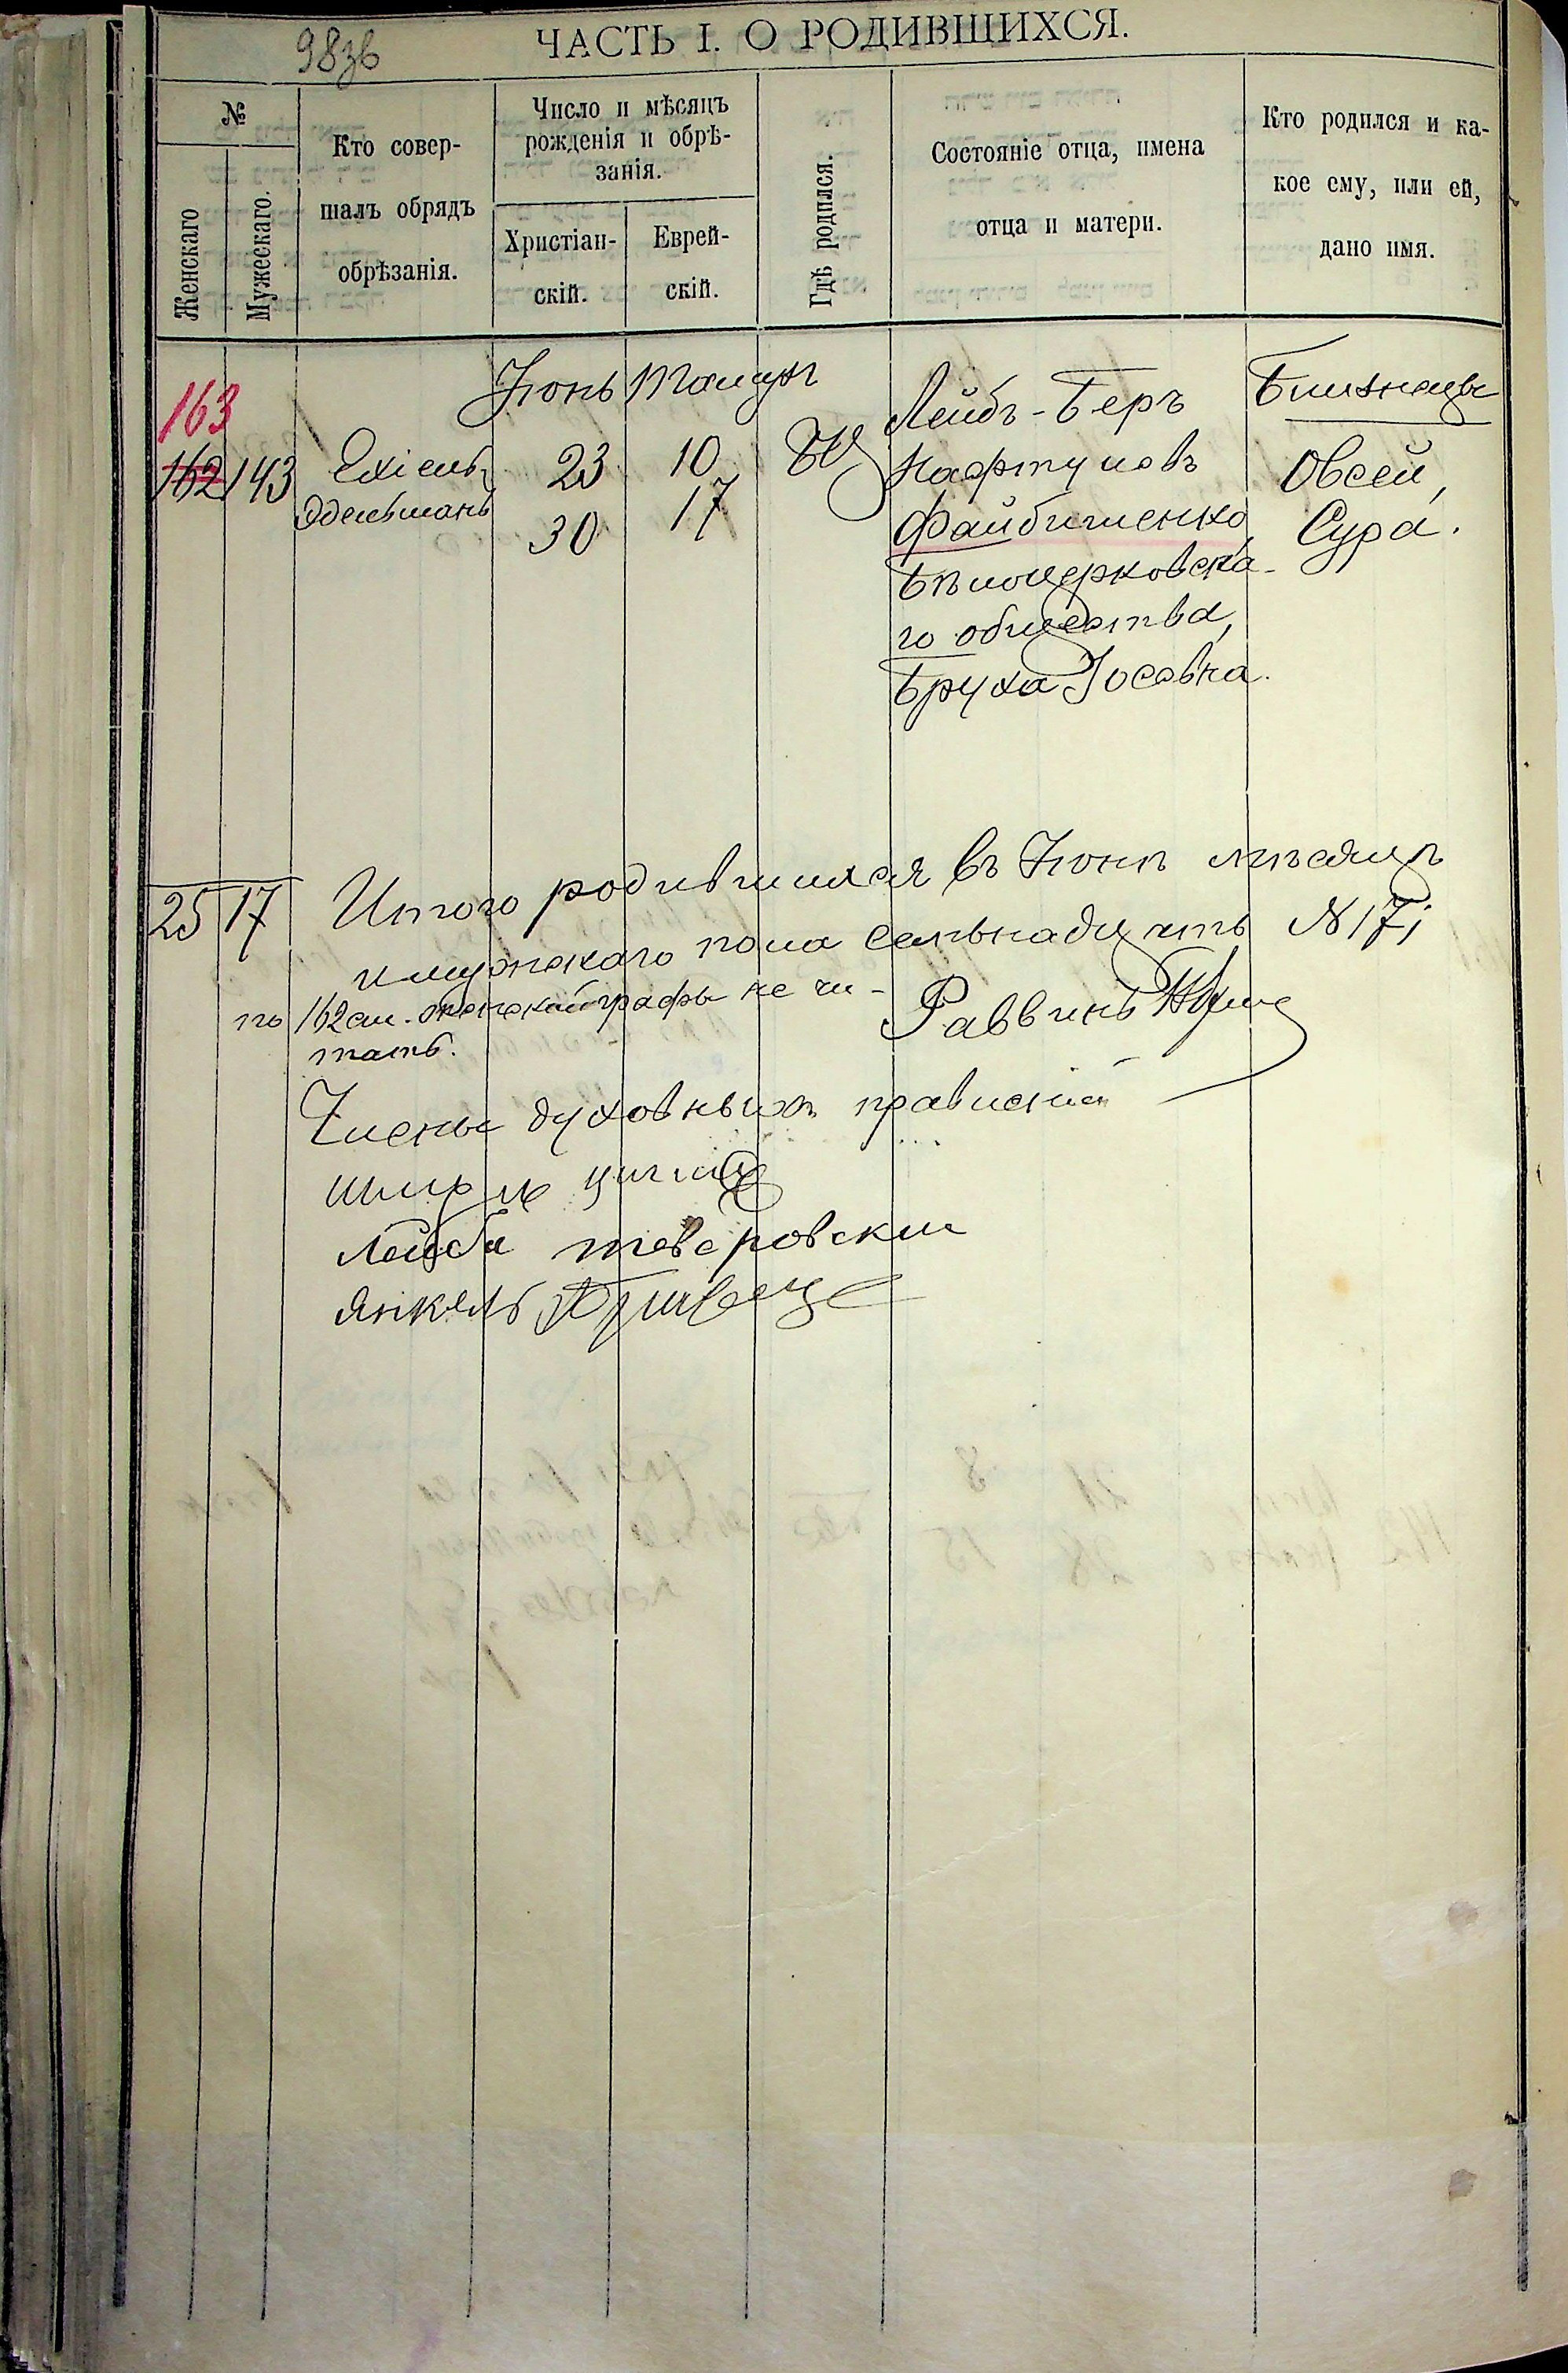 98зв
ЧАСТЬ I. О РОДИВШИХСЯ.
№
Женскаго
Мужескаго.
Кто совер-
шалъ обрядъ
обрѣзанія.
Число и мѣсяцъ
рожденія и обрѣ-
занія.
Христіан-
скій.
Еврей-
скій.
Гдѣ родился.
Состояніе отца, имена
отца и матери.
Кто родился и ка-
кое ему, или ей,
дано имя.
Іюнь Тамузъ
163
162 143 Ехіель 23 10 БЦ
Эдельманъ 30 17
Лейбъ-Беръ
Нафтуловъ
Файбишенко,
Бѣлоцерковска-
го общества,
Бруха Іосевна.
Близнецы
Овсей,
Сура.
25 17 Итого родившихся въ Іюнѣ мѣсяцѣ
мужскаго пола семьнадцать N 17;
по 162 женской графы не чи-
тать.
Раввинъ
Члены духовныхъ правленій
Лейба тверовски
Янкель